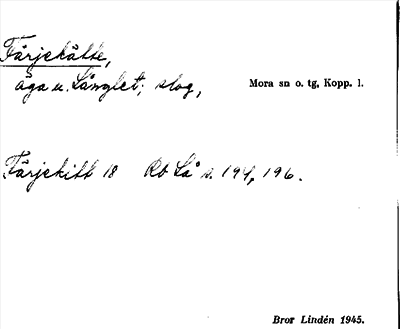 Färjekätte,
äga u. Långlet; slog, Mora sn o. tg, Kopp. l.
Färjekitt 18 Rb Lå s. 194, 196.
Bror Lindén 1945.